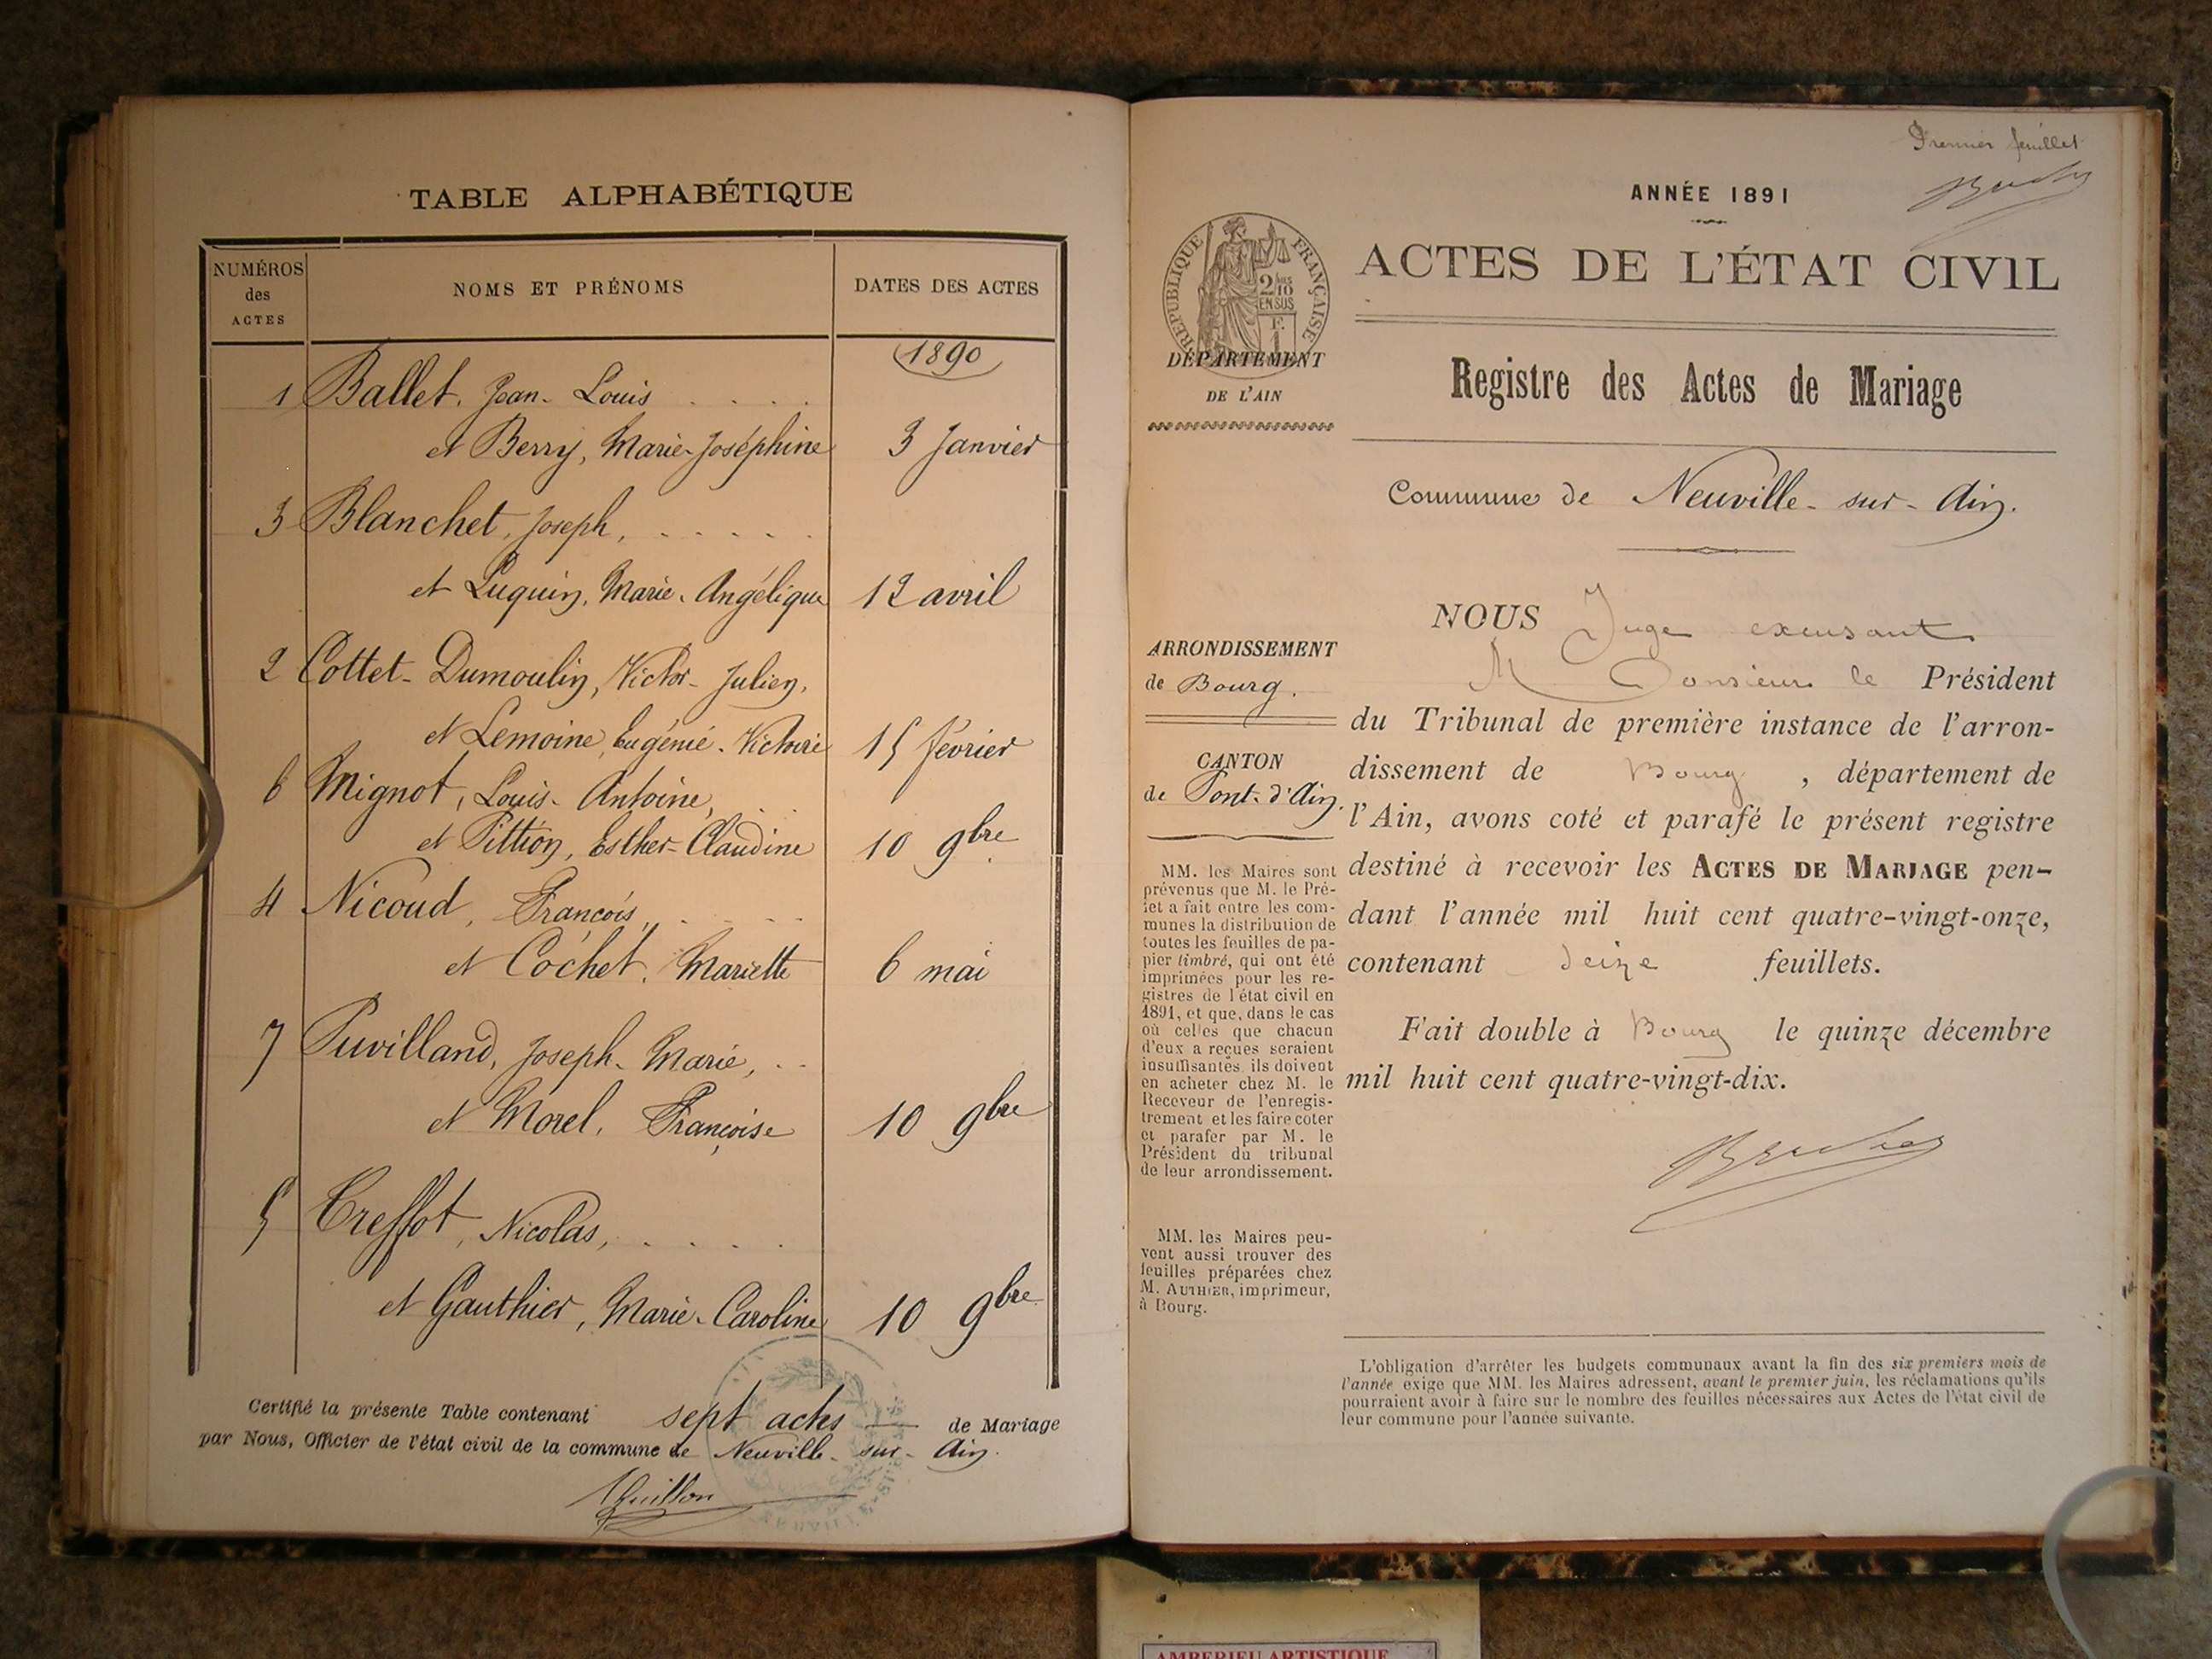 TABLE ALPHABÉTIQUE
NUMÉROS
des
ACTES
NOMS ET PRÉNOMS
DATES DES ACTES
1890
1 Ballet, Jean-Louis . . . .
et Berry, Marie-Joséphine 3 Janvier
3 Blanchet, Joseph, . . . . .
et Luquin, Marie-Angélique 12 avril
2 Cottet-Dumoulin, Victor-Julien,
et Lemoine, Eugénie-Victoire 15 février
6 Mignot, Louis-Antoine, . .
et Pittion, Esther-Claudine 10 9bre
4 Nicoud, François, . . . .
et Cochet, Mariette 6 mai
7 Puvilland, Joseph-Marie, . .
et Morel, Françoise 10 9bre
5 Treffot, Nicolas, . . . .
et Gauthier, Marie-Caroline 10 9bre
Certifié la présente Table contenant sept actes — de Mariage
par Nous, Officier de l'état civil de la commune de Neuville-sur-Ain.
Premier feuillet
ANNÉE 1891
ACTES DE L'ÉTAT CIVIL
RÉPUBLIQUE FRANÇAISE
2/10
EN SUS
F.
1
DÉPARTEMENT
DE L'AIN
Registre des Actes de Mariage
Commune de Neuville-sur-Ain.
ARRONDISSEMENT
de Bourg.
CANTON
de Pont-d'Ain.
MM. les Maires sont
prévenus que M. le Pré-
fet a fait entre les com-
munes la distribution de
toutes les feuilles de pa-
pier timbré, qui ont été
imprimées pour les re-
gistres de l'état civil en
1891, et que, dans le cas
où celles que chacun
d'eux a reçues seraient
insuffisantes, ils doivent
en acheter chez M. le
Receveur de l'enregis-
trement et les faire coter
et parafer par M. le
Président du tribunal
de leur arrondissement.
MM. les Maires peu-
vent aussi trouver des
feuilles préparées chez
M. AUTHIER, imprimeur,
à Bourg.
NOUS Juge excusant
Monsieur le Président
du Tribunal de première instance de l'arron-
dissement de Bourg, département de
l'Ain, avons coté et parafé le présent registre
destiné à recevoir les ACTES DE MARIAGE pen-
dant l'année mil huit cent quatre-vingt-onze,
contenant seize feuillets.
Fait double à Bourg le quinze décembre
mil huit cent quatre-vingt-dix.
L'obligation d'arrêter les budgets communaux avant la fin des six premiers mois de
l'année exige que MM. les Maires adressent, avant le premier juin, les réclamations qu'ils
pourraient avoir à faire sur le nombre des feuilles nécessaires aux Actes de l'état civil de
leur commune pour l'année suivante.
AMBERIEU ARTISTIQUE